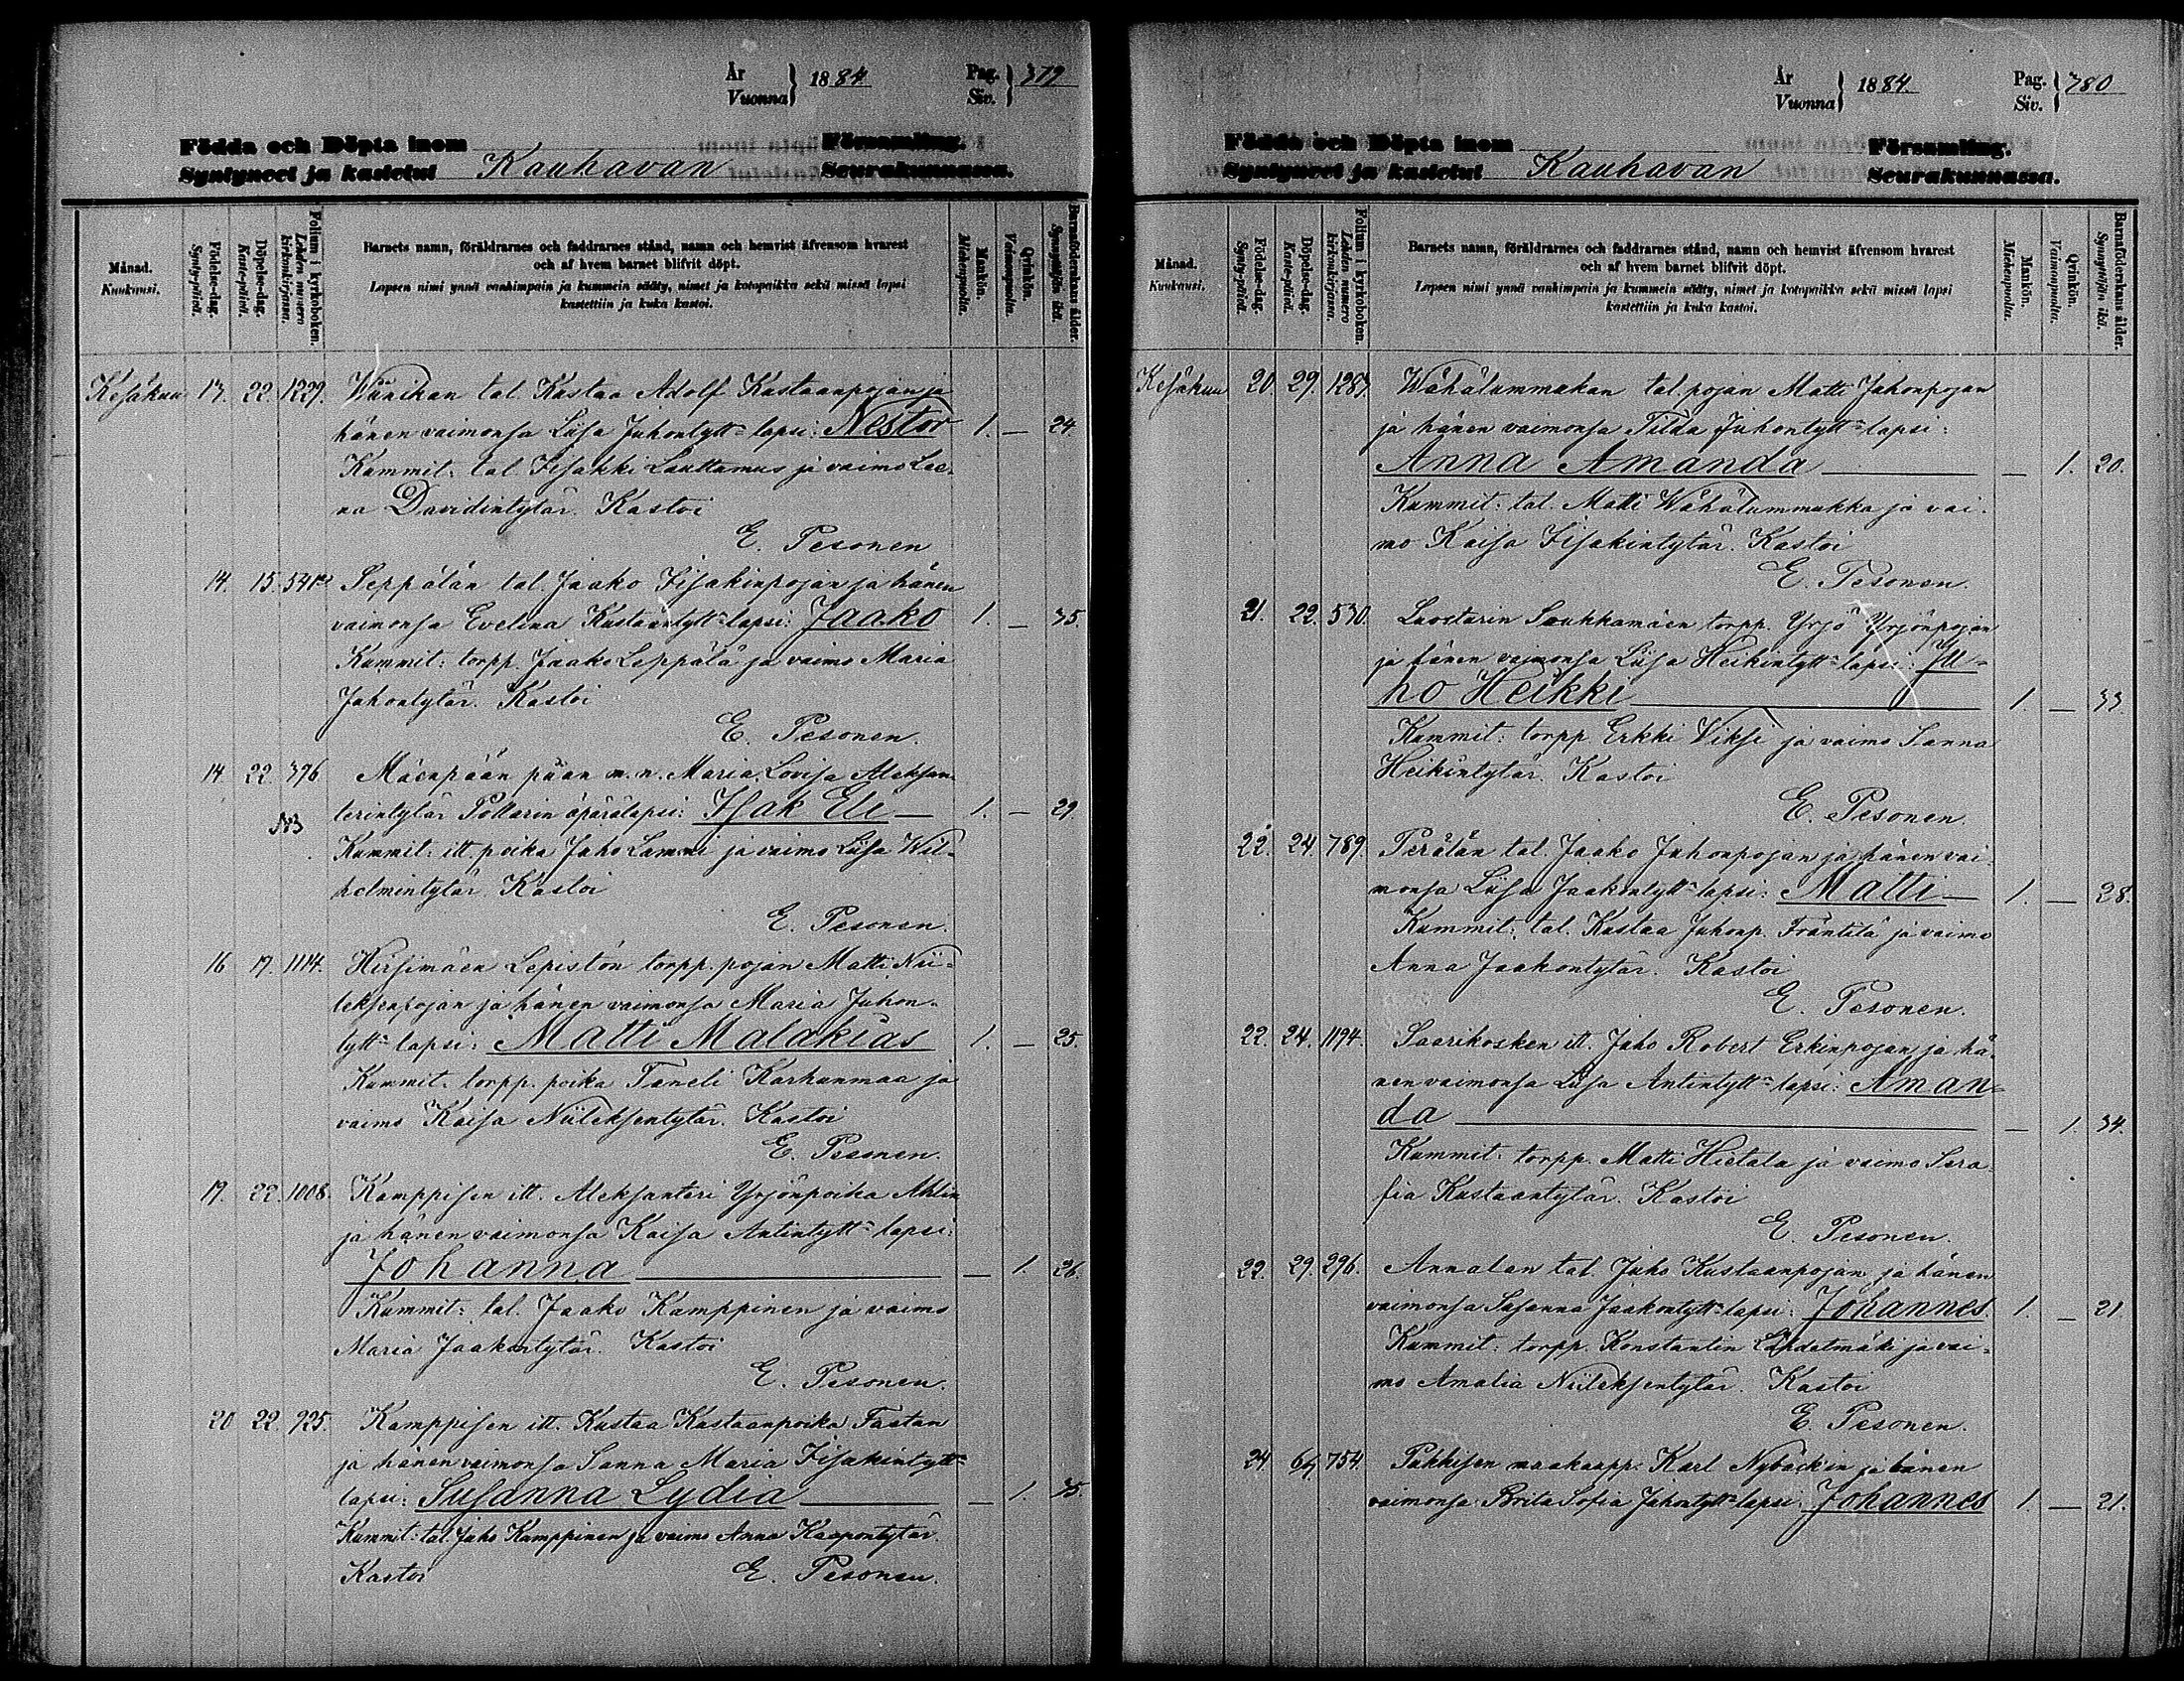 År
Vuonna } 1884. Pag.
Siv. } 379.
Födda och Döpta inom
Syntyneet ja kastetut Kauhavan Församling.
Seurakunnassa.
Månad.
Kuukausi.
Födelse-dag.
Synty-päivä.
Döpelse-dag.
Kaste-päivä.
Folium i kyrkoboken.
Lehden numero kirkonkirjassa.
Barnets namn, föräldrarnes och faddrarnes stånd, namn och hemvist äfvensom hvarest
och af hvem barnet blifvit döpt.
Lapsen nimi ynnä vanhimpain ja kummein sääty, nimet ja kotopaikka sekä missä lapsi
kastettiin ja kuka kastoi.
Mankön.
Miehenpuolia.
Qvinkön.
Vaimonpuolia.
Barnaföderskans ålder.
Synnyttäjän ikä.
Kesäkuu 13. 22. 1229. tal. Kustaa Adolf Kustaanpojan ja
hänen vaimonsa Liisa Juhontytt= lapsi: Nestor 1. — 24.
Kummit: tal. Iisakki Lauttamus ja vaimo Lee-
na Davidintytär. Kastoi
E. Pesonen
14. 15. 541 Seppälän tal. Jaako Iisakinpojan ja hänen
vaimonsa Evelina Kustaantytt= lapsi: Jaako 1. — 35.
Kummit: torpp. Jaako Leppälä ja vaimo Maria
Juhontytär. Kastoi
E. Pesonen.
14 22. 396 Mäenpään m. n. Maria Lovisa Aleksan-
terintytär Pollarin äpärälapsi: Isak Eli — 1. — 29.
N3
Kummit: itt. poika Juho Lammi ja vaimo Liisa Wil-
helmintytär. Kastoi
E. Pesonen.
16 17. 1114. Hirsimäen Lepistön torpp. pojan Matti Nii-
leksenpojan ja hänen vaimonsa Maria Juhon-
tytt= lapsi: Matti Malakias 1. — 25.
Kummit: torpp. poika Taneli Karhunmaa ja
vaimo Kaisa Niileksentytär. Kastoi
E. Pesonen.
19. 22. 1008. Kamppisen itt. Aleksanteri Yrjönpoika Ahlin
ja hänen vaimonsa Kaisa Antintytt= lapsi:
Johanna — 1. 26.
Kummit: tal. Jaako Kamppinen ja vaimo
Maria Jaakontytär. Kastoi
E. Pesonen.
20 22. 925. Kamppisen itt. Kustaa Kustaanpoika Fastan
ja hänen vaimonsa Sanna Maria Iisakintytt=
lapsi: Susanna Lydia — 1. 35.
Kummit: tal. Juho Kamppinen ja vaimo Anna Kaapontytär.
Kastoi E. Pesonen.
År
Vuonna } 1884. Pag.
Siv. } 380
Födda och Döpta inom
Syntyneet ja kastetut Kauhavan Församling.
Seurakunnassa.
Månad.
Kuukausi.
Födelse-dag.
Synty-päivä.
Döpelse-dag.
Kaste-päivä.
Folium i kyrkoboken.
Lehden numero kirkonkirjassa.
Barnets namn, föräldrarnes och faddrarnes stånd, namn och hemvist äfvensom hvarest
och af hvem barnet blifvit döpt.
Lapsen nimi ynnä vanhimpain ja kummein sääty, nimet ja kotopaikka sekä missä lapsi
kastettiin ja kuka kastoi.
Mankön.
Miehenpuolia.
Qvinkön.
Vaimonpuolia.
Barnaföderskans ålder.
Synnyttäjän ikä.
Kesäkuu 20. 29. Wähälummukan tal. pojan Matti Juhonpojan
ja hänen vaimonsa Tilda Juhontytt= lapsi:
Anna Amanda — 1. 20.
Kummit: tal. Matti Wähälummukka ja vai-
mo Kaisa Iisakintytär. Kastoi
E. Pesonen.
21. 22. 530. Luostarin Saukkamäen torpp. Yrjö Yrjönpojan
ja hänen vaimonsa Liisa Heikintytt= lapsi: Ju-
ho Heikki 1. — 33
Kummit: torpp Erkki Viksi ja vaimo Sanna
Heikintytär. Kastoi
E. Pesonen.
22. 24. 789. Perälän tal. Jaako Juhonpojan ja hänen vai-
monsa Liisa Jaakontytt= lapsi: Matti — 1. — 28.
Kummit: tal. Kustaa Juhonp. Fräntilä ja vaimo
Anna Jaakontytär. Kastoi
E. Pesonen.
22. 24. 1194. Saarikosken itt. Juho Robert Erkinpojan ja hä-
nen vaimonsa Liisa Antintytt= lapsi: Aman=
da — 1. 34.
Kummit: torpp. Matti Hietala ja vaimo Sera-
fia Kustaantytär. Kastoi
E. Pesonen.
22. 29. 296. Annalan tal. Juho Kustaanpojan ja hänen
vaimonsa Susanna Jaakontytt= lapsi: Johannes. 1. — 21.
Kummit: torpp. Konstantin ja vai-
mo Amalia Niileksentytär. Kastoi
E. Pesonen.
24. 6/7 754. Pukkisen maakaupp. Karl Nybäck'in ja hänen
vaimonsa Brita Sofia Juhontytt= lapsi: Johannes 1. — 21.